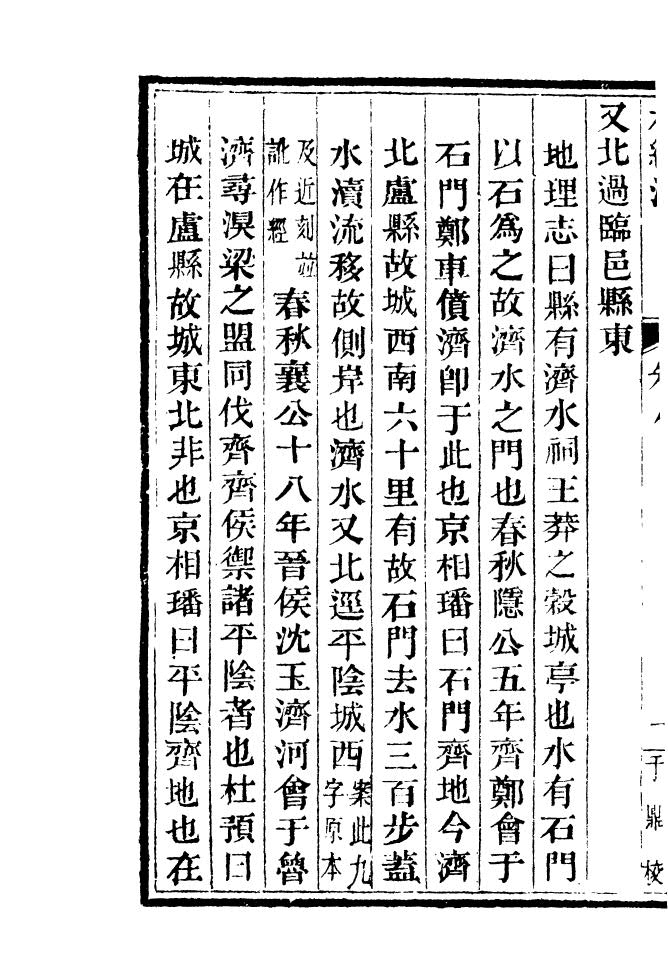 又北過臨邑縣東
地理志曰縣有濟水祠王莽之穀城亭也水有石門
以石爲之故濟水之門也春秋隱公五年齊鄭會于
石門鄭車僨濟卽于此也京相璠曰石門齊地今濟
北盧縣故城西南六十里有故石門去水三百步蓋
水瀆流移故側岸也濟水又北逕平陰城西案此九字原本
及近刻並訛作經春秋襄公十八年晉侯沈玉濟河會于魯
濟尋湨梁之盟同伐齊齊侯禦諸平陰者也杜預曰
城在盧縣故城東北非也京相璠曰平陰齊地也在